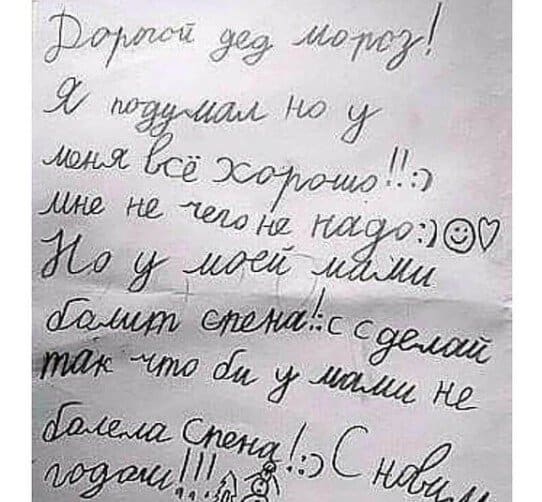 Дорогой дед мороз!
Я подумал но у
меня всё хорошо!!:)
мне не чего не надо:)☺♡
Но у моей мами
балит спена!:с сделай
так что би у мами не
балела Спена!:) С новим
годом!!!